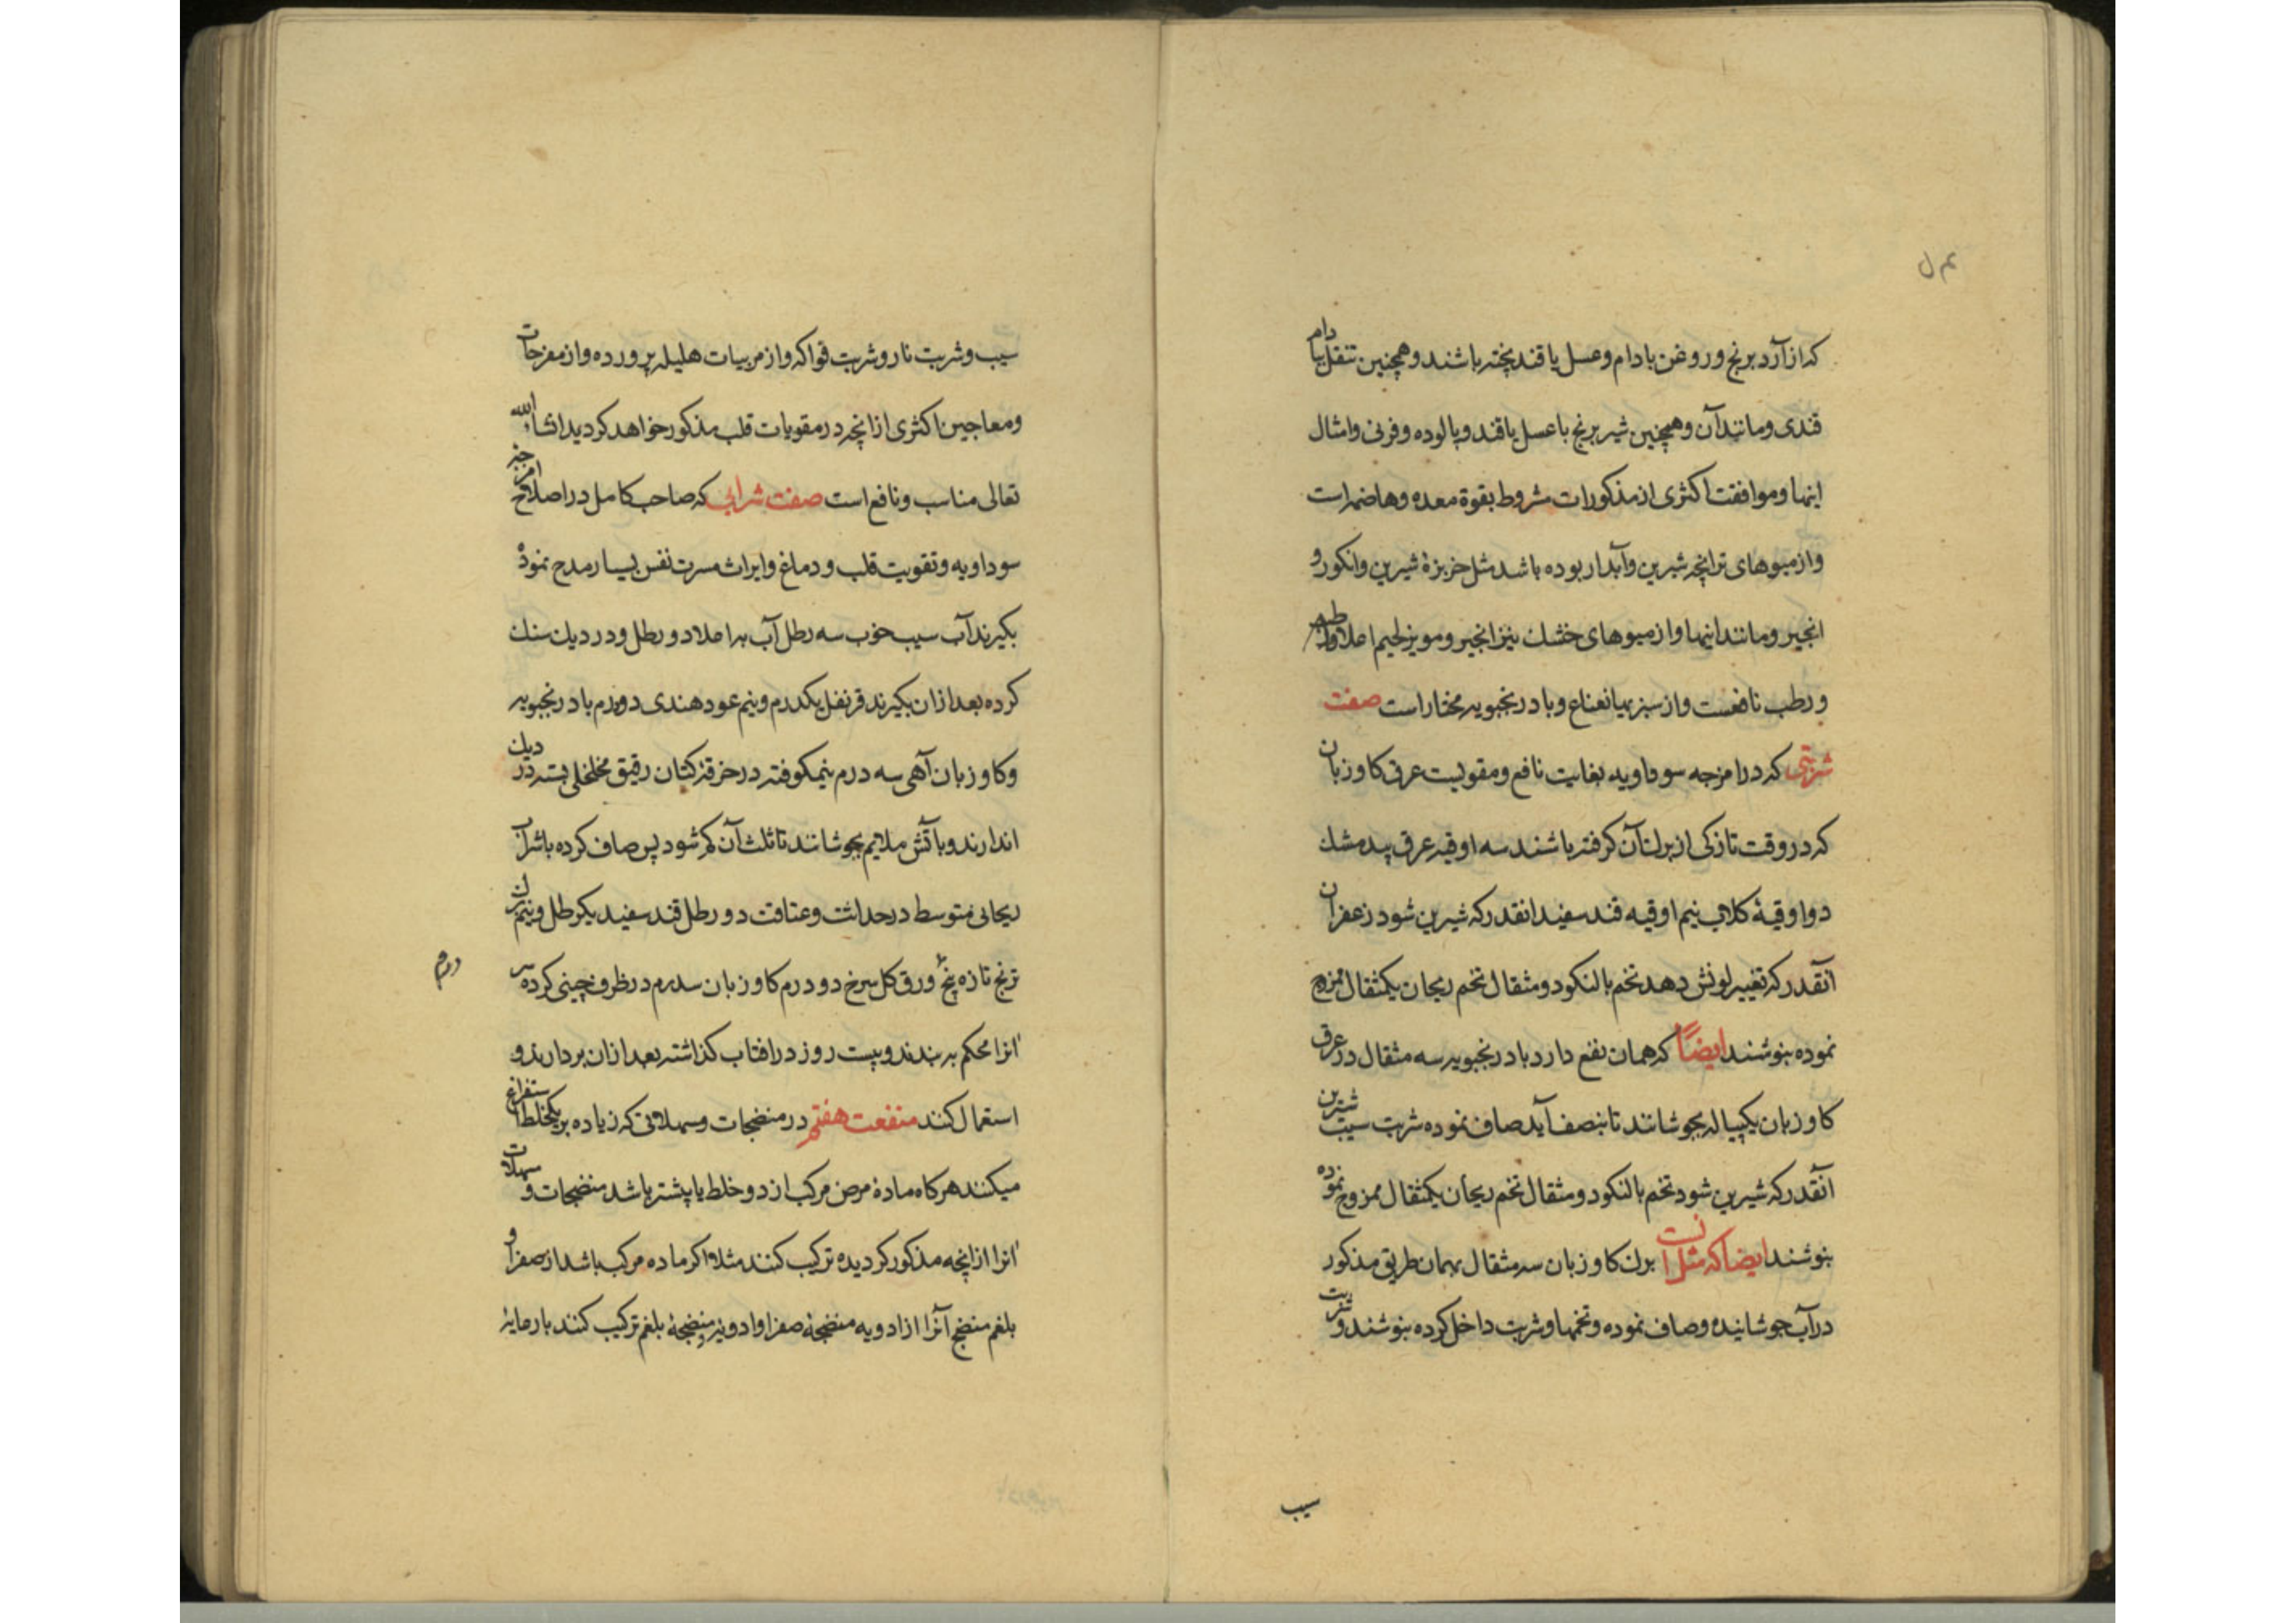 که از آرد برنج و روغن بادام و عسل یا قند پخته باشند و همچنین تنقل بادام
قندی و مانند آن و همچنین شیر برنج با عسل یا قند و پالوده و فرنی و امثال
اینها و موافقت اکثری از مذکورات مشروط بقوة معده و هاضمه است
و از میوهای تر انچه شیرین و آبدار بوده باشد مثل خربزهٔ شیرین و انکور و
انجیر و مانند اینها و از میوهای خشک نیز انجیر و مویز لحیم
و رطب نافعست و از سبزیها نعناع و بادرنجبویه مختار است صفت
شربتی که در امزجه سوداویه بغایت نافع و مقویست عرق کاوزبان
که در وقت تازکی از برک آن کرفته باشند سه اوقیه عرق بیدمشک
دو اوقیهٔ کلاب نیم اوقیه قند سفید انقدر که شیرین شود زعفران
آنقدر که تغییر لونش دهد تخم بالنکو دو مثقال تخم ریحان یکمثقال ممزوج
نموده بنوشند ایضاً که همان نفع دارد بادرنجبویه سه مثقال در عرق
کاوزبان یکپیاله بجوشانند تا بنصف آید صاف نموده شربت سیب شیرین
آنقدر که شیرین شود تخم بالنکو دو مثقال تخم ریحان یکمثقال ممزوج نموده
بنوشند ایضا که مثل انست برک کاوزبان سه مثقال بهمان طریق مذکور
در آب جوشانیده و صاف نموده و تخمها و شربت داخل کرده بنوشند و شربت
سیب
سیب و شربت نار و شربت فواکه و از مربیات هلیله پرورده و از مفرحات
و معاجین اکثری از انچه در مقویات قلب مذکور خواهد کردید انشاء الله
تعالی مناسب و نافع است صفت شرابی که صاحب کامل در اصلاح امزجه
سوداویه و تقویت قلب و دماغ و ایراث مسرت نفس بسیار مدح نموده
بکیرند آب سیب خوب سه رطل آب به املا دو رطل و در دیک سنک
کرده بعد ازان بکیرند قرنفل یکدرم و نیم عود هندی دو درم بادرنجبویه
و کاوزبان آهی سه درم نیمکوفته در خرقه کتان رقیق مخلخلی بسته در دیک
اندازند و با آتش ملایم بجوشانند تا ثلث آن کم شود پس صاف کرده با شراب
ریحانی متوسط در حداثت و عتاقت دو رطل قند سفید یکرطل و نیم
ترنج تازه پنج ورق کل سرخ دو درم کاوزبان سه درم در ظرف چینی کرده سر
انرا محکم به بندند و بیست روز در افتاب کذاشته بعد ازان بردارند و
استعمال کنند منفعت هفتم در منضجات و مسهلاتی که زیاده بر یکخلط استفراغ
میکنند هرکاه مادهٔ مرض مرکب از دو خلط یا بیشتر باشد منضجات و مسهلات
انرا از انچه مذکور کردیده ترکیب کنند مثلا اکر ماده مرکب باشد از صفرا و
بلغم منضج آنرا از ادویه منضجهٔ صفرا و ادویهٔ منضجهٔ بلغم ترکیب کنند با رعایهٔ
درم